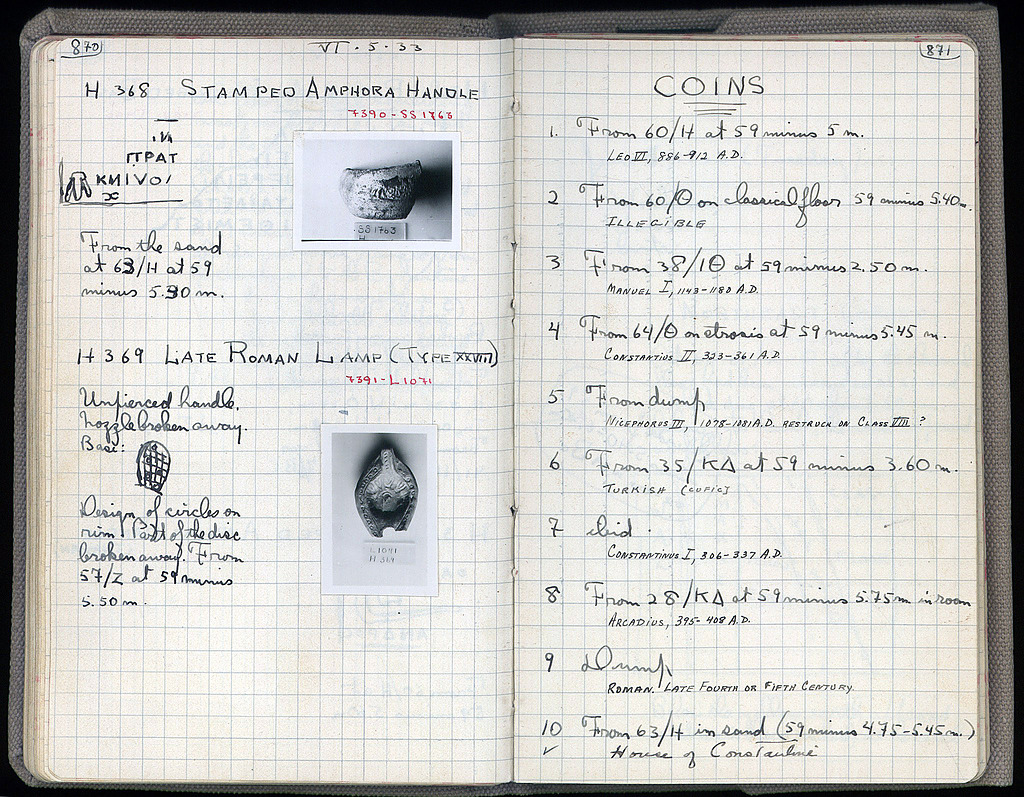 870
VI · 5 · 33
H 368 STAMPED AMPHORA HANDLE
7390 - SS 1763
ΠΡΑΤ
ΚΝΙVΟΙ
SS 1763
H
From the sand
at 63/H at 59
minus 5.30 m.
H 369 LATE ROMAN LAMP (TYPE XXVIII)
7391 - L1071
Unpierced handle.
Nozzle broken away.
Base:
Design of circles on
rim. Part of the disc
broken away. From
57/Z at 59 minus
5.50 m.
H 369
871
COINS
1. From 60/H at 59 minus 5 m.
LEO VI, 886-912 A.D.
2 From 60/Θ on classical floor 59 minus 5.40m.
ILLEGIBLE
3 From 38/ΙΘ at 59 minus 2.50 m.
MANUEL I, 1143-1180 A.D.
4 From 64/Θ on strosis at 59 minus 5.45 m.
CONSTANTIUS II, 323-361 A.D.
5 From dump
NICEPHORUS III, 1078-1081 A.D. RESTRUCK ON CLASS VIII ?
6 From 35/ΚΔ at 59 minus 3.60 m.
TURKISH [CUFIC]
7 ibid.
CONSTANTINUS I, 306-337 A.D.
8 From 28/ΚΔ at 59 minus 5.75m in room
ARCADIUS, 395-408 A.D.
9 Dump
ROMAN. LATE FOURTH OR FIFTH CENTURY.
10 From 63/H in sand (59 minus 4.75-5.45m.)
✓ House of Constantine